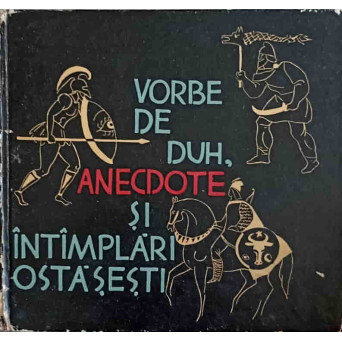 VORBE
DE
DUH,
ANECDOTE
ȘI
ÎNTÎMPLĂRI
OSTĂȘEȘTI